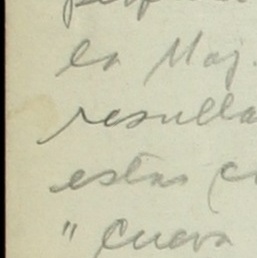 la Maj.
resulta
estas c
" Cueva